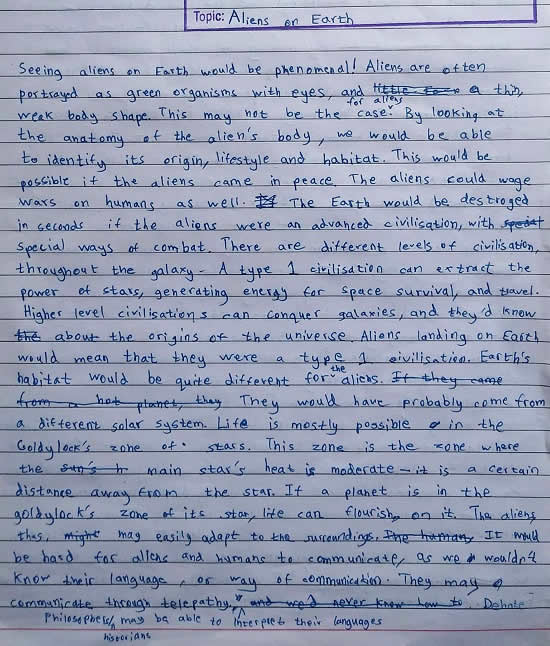 Topic: Aliens on Earth
Seeing aliens on Earth would be phenomenal! Aliens are often
portrayed as green organisms with eyes, and a thin,
weak body shape. This may not be the case for aliens. By looking at
the anatomy of the alien's body, we would be able
to identify its origin, lifestyle and habitat. This would be
possible if the aliens came in peace. The aliens could wage
wars on humans as well. The Earth would be destroyed
in seconds if the aliens were an advanced civilisation, with
special ways of combat. There are different levels of civilisation,
throughout the galaxy - A type 1 civilisation can extract the
power of stars, generating energy for space survival, and travel.
Higher level civilisations can conquer galaxies, and they'd know
about the origins of the universe. Aliens landing on Earth
would mean that they were a type 1 civilisation. Earth's
habitat would be quite different for the aliens. If they came
from a hot planet, they They would have probably come from
a different solar system. Life is mostly possible in the
Goldylock's zone of stars. This zone is the zone where
the main star's heat is moderate - it is a certain
distance away from the star. If a planet is in the
goldylock's zone of its star, life can flourish on it. The aliens,
thus, might may easily adapt to the surroundings. The human, It would
be hard for aliens and humans to communicate, as we wouldn't
know their language, or way of communication. They may
communicate through telepathy, and we'd never know how to
Philosophers/ historians may be able to interpret their languages